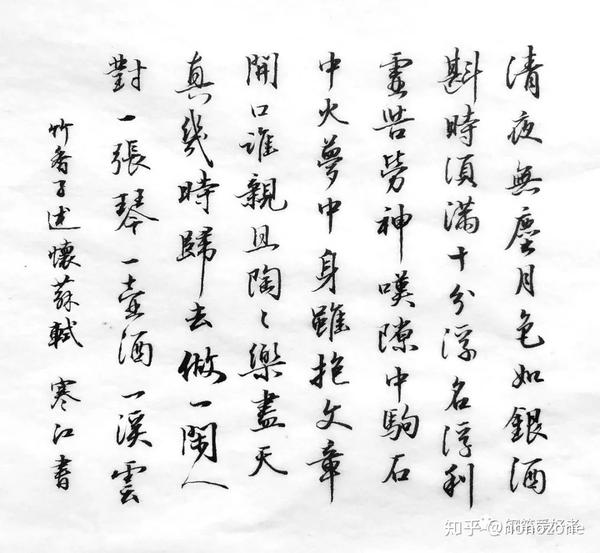 清夜無塵月色如銀酒
斟時須滿十分浮名浮利
虛苦勞神嘆隙中駒石
中火夢中身雖抱文章
開口誰親且陶〻樂盡天
真幾時歸去做一閑人
對一張琴一壺酒一溪雲
竹香子述懷蘇軾 寒江書
知乎 @nonozone